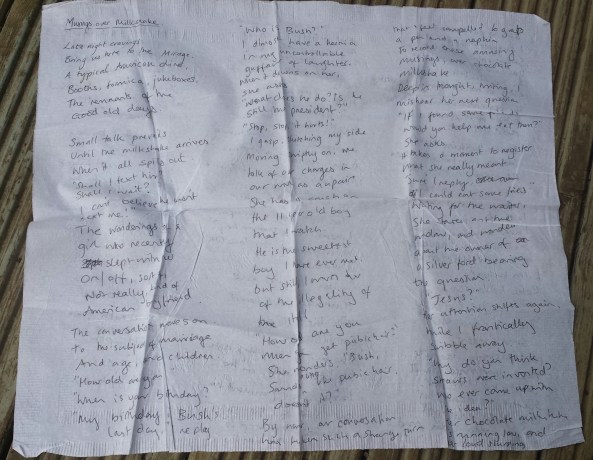 Musings over Milkshake
Late night cravings
Bring us here to the Mirage
A typical American diner,
Booths, formica, jukeboxes,
The remnants of the
Good old days
Small talk prevails
Until the milkshake arrives
When it all spills out
"Should I text him
Should I wait?
I can't believe he won't
text me!"
The wonderings of a
girl who recently
slept with her
On/off, sort of
Not really kind of
American boyfriend
The conversation moves on
to the subject of marriage
And age, and children.
"How old are you
When is your birthday?
"My birthday is Bush's
last day" I reply
"Who is Bush?"
I almost have a hernia
In my uncontrollable
outburst of laughter.
When it dawns on her,
she asks
"What does he do? Is he
still the president?"
"Stop, stop it hurts!"
I gasp, clutching my side
Moving swiftly on, we
talk of our changes in
our
She has a
the 11 year old boy
that
He is the sweetest
boy I have ever met
But still
of the illegality of
"How old are you
when you get pubic hair?"
She wonders "Bush,
pubic hair,
doesn't it?"
By now, our conversation
has taken such a strange turn
That I feel compelled to grab
a pen and a napkin
To record these amusing
musings over chocolate
milkshake
Deep in thought, writing, I
mishear her next question
"If I found some
would you help me eat them?"
She asks
It takes a moment to register
what she really meant
"Sure" I reply,
"I could eat some fries"
Waiting for the waiter,
She stares out the
window, and
about the owner of
a silver ford bearing
the question
"Jesus?"
Her attention shifts again,
while I frantically
scribble away
"Why do you think
straws were invented?
Who ever came up with
the idea?"
Our chocolate milkshake
end
loud slurping